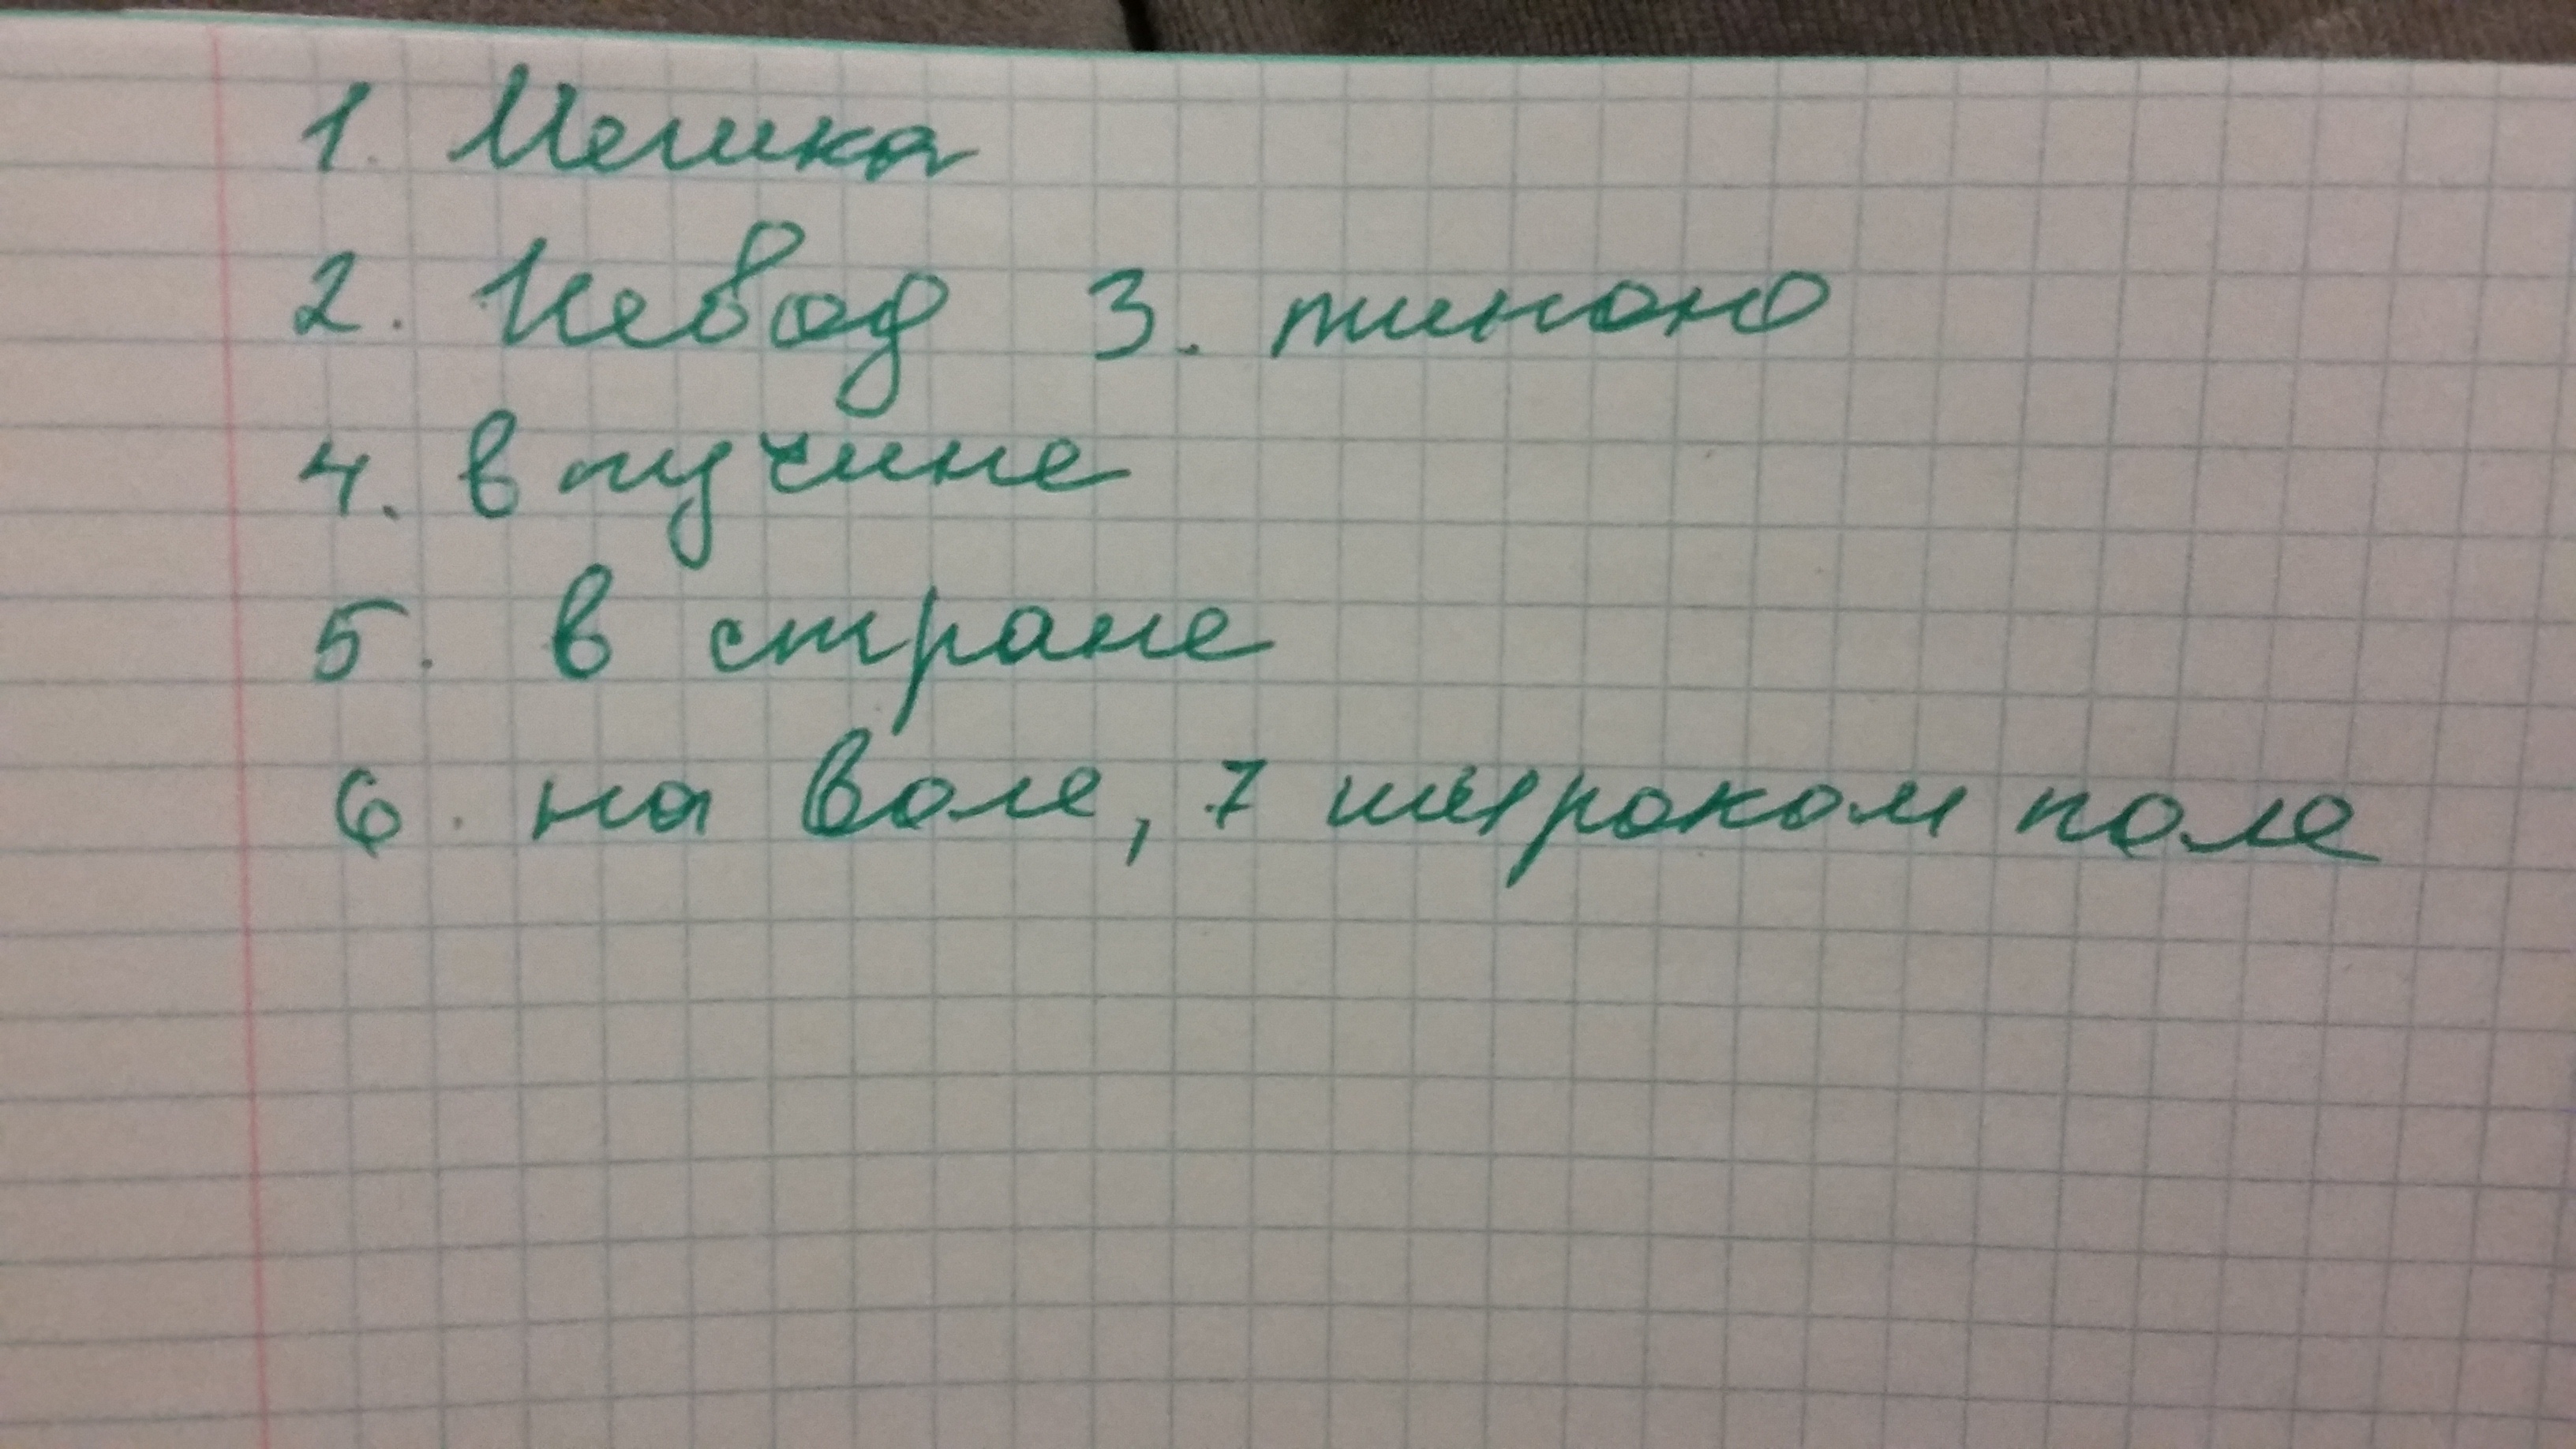 1. Мешка
2. Невод 3. тиною
4. в пучине
5. в стране
6. на воле, 7 широком поле